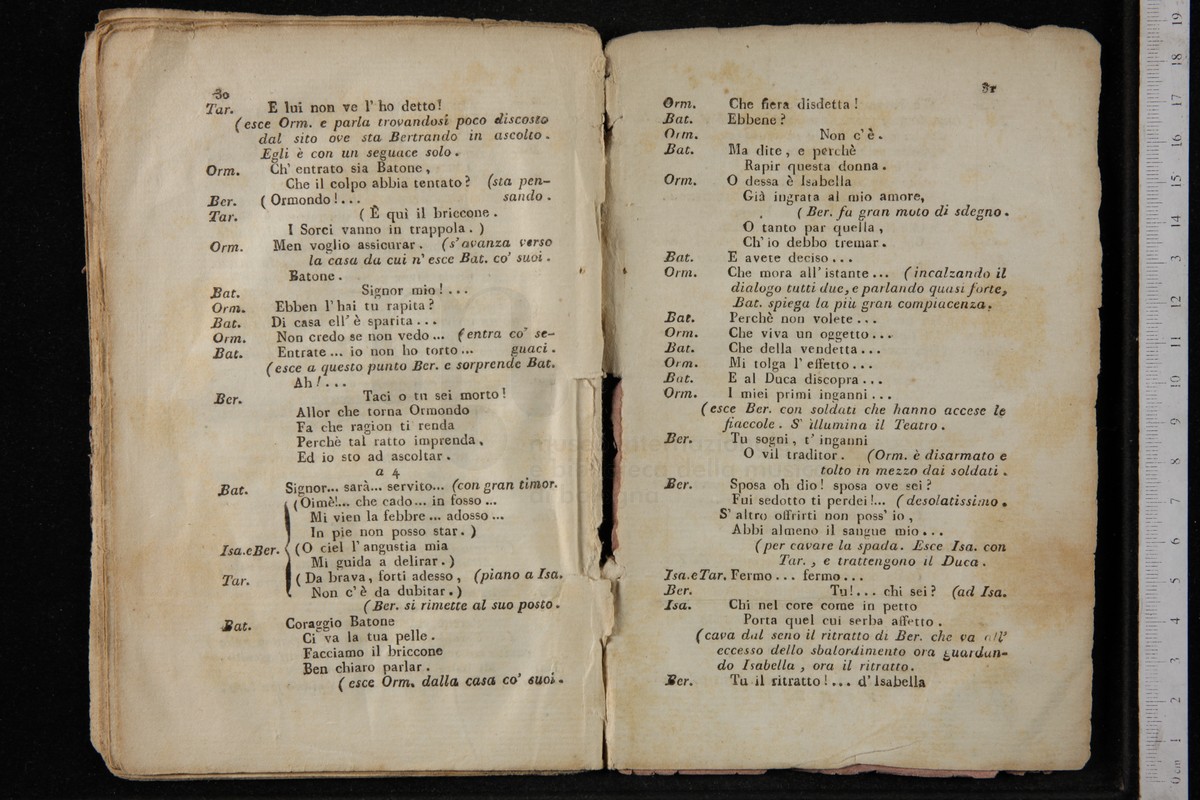 30
Tar. E lui non ve l' ho detto!
(esce Orm. e parla trovandosi poco discosto
dal sito ove sta Bertrando in ascolto.
Egli è con un seguace solo.
Orm. Ch' entrato sia Batone,
Che il colpo abbia tentato? (sta pen-
Ber. (Ormondo!... sando.
Tar. (È quì il briccone.
I Sorci vanno in trappola.)
Orm. Men voglio assicurar. (s' avanza verso
la casa da cui n' esce Bat. co' suoi.
Batone.
Bat. Signor mio!...
Orm. Ebben l' hai tu rapita?
Bat. Di casa ell' è sparita...
Orm. Non credo se non vedo... (entra co' se-
Bat. Entrate... io non ho torto... guaci.
(esce a questo punto Ber. e sorprende Bat.
Ah!...
Ber. Taci o tu sei morto!
Allor che torna Ormondo
Fa che ragion ti renda
Perchè tal ratto imprenda,
Ed io sto ad ascoltar.
a 4
Bat. Signor... sarà... servito... (con gran timor.
(Oimè!... che cado... in fosso...
Mi vien la febbre... adosso...
In pie non posso star.)
Isa.eBer. (O ciel l' angustia mia
Mi guida a delirar.)
Tar. (Da brava, forti adesso, (piano a Isa.
Non c' è da dubitar.)
(Ber. si rimette al suo posto.
Bat. Coraggio Batone
Ci va la tua pelle.
Facciamo il briccone
Ben chiaro parlar.
(esce Orm. dalla casa co' suoi.
31
Orm. Che fiera disdetta!
Bat. Ebbene?
Orm. Non c' è.
Bat. Ma dite, e perchè
Rapir questa donna.
Orm. O dessa è Isabella
Già ingrata al mio amore,
(Ber. fa gran moto di sdegno.
O tanto par quella,
Ch' io debbo tremar.
Bat. E avete deciso...
Orm. Che mora all' istante... (incalzando il
dialogo tutti due, e parlando quasi forte,
Bat. spiega la più gran compiacenza.
Bat. Perchè non volete...
Orm. Che viva un oggetto...
Bat. Che della vendetta...
Orm. Mi tolga l' effetto...
Bat. E al Duca discopra...
Orm. I miei primi inganni...
(esce Ber. con soldati che hanno accese le
fiaccole. S' illumina il Teatro.
Ber. Tu sogni, t' inganni
O vil traditor. (Orm. è disarmato e
tolto in mezzo dai soldati.
Ber. Sposa oh dio! sposa ove sei?
Fui sedotto ti perdei!... (desolatissimo.
S' altro offrirti non poss' io,
Abbi almeno il sangue mio...
(per cavare la spada. Esce Isa. con
Tar., e trattengono il Duca.
Isa.eTar. Fermo... fermo...
Ber. Tu!... chi sei? (ad Isa.
Isa. Chi nel core come in petto
Porta quel cui serba affetto.
(cava dal seno il ritratto di Ber. che va all'
eccesso dello sbalordimento ora guardan-
do Isabella, ora il ritratto.
Ber. Tu il ritratto!... d' Isabella